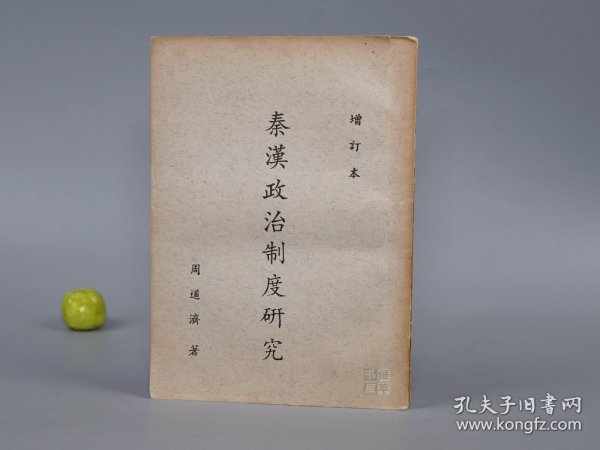 增訂本
秦漢政治制度研究
周道濟 著
书屋
孔夫子旧书网
www.kongfz.com